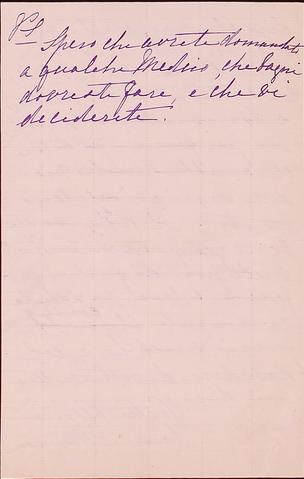 PS
— Spero che avrete domandato
a qualche Medico, che bagni
dovreste fare, e che vi
deciderete.